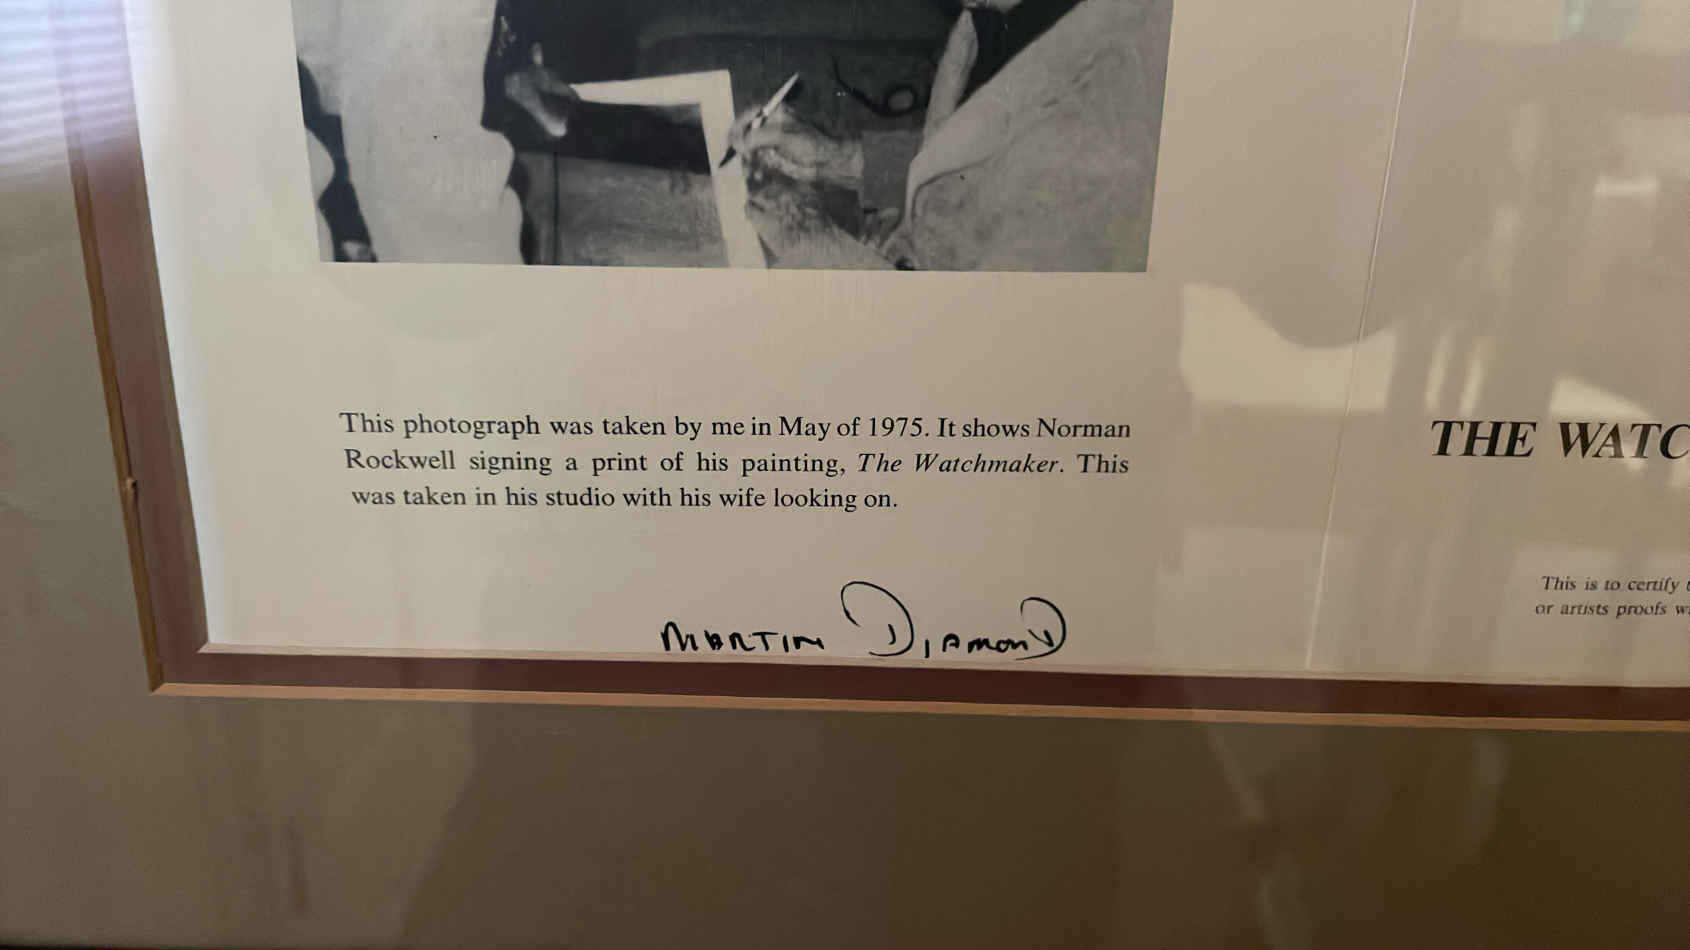 This photograph was taken by me in May of 1975. It shows Norman
Rockwell signing a print of his painting, The Watchmaker. This
was taken in his studio with his wife looking on.
MARTIN DIAMOND
THE WATC
This is to certify
or artists proofs